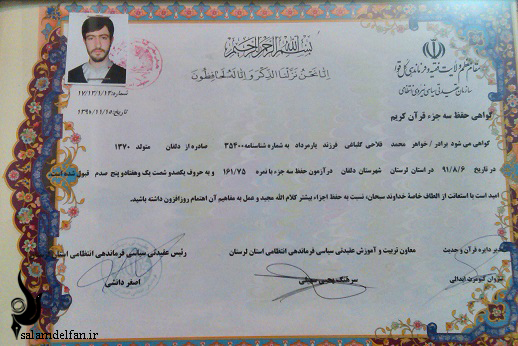 بسم الله الرحمن الرحیم
إنا نحن نزلنا الذکر و إنا له لحافظون
مقام معظم ولایت فقیه و فرماندهی کل قوا
سازمان عقیدتی سیاسی نیروی انتظامی
شماره: ۱۷/۱۲/۱/۱۳
تاریخ: ۱۳۹۰/۱۱/۱۵
گواهی حفظ سه جزء قرآن کریم
گواهی می شود برادر / خواهر محمد فلاحی گلباغی فرزند یارمرداد به شماره شناسنامه ۳۵۴۰۰ صادره از دلفان متولد ۱۳۷۰
در تاریخ ۹۱/۸/۶ در استان لرستان شهرستان دلفان در آزمون حفظ سه جزء با نمره ۱۶۱/۷۵ و به حروف یکصدو شصت یک وهفتادو پنج صدم قبول شده است.
امید است با استعانت از الطاف خاصة خداوند سبحان، نسبت به حفظ اجزاء بیشتر کلام الله مجید و عمل به مفاهیم آن اهتمام روزافزون داشته باشید.
مدیر دایره قرآن و حدیث
معاون تربیت و آموزش عقیدتی سیاسی فرماندهی انتظامی استان لرستان
رئیس عقیدتی سیاسی فرماندهی انتظامی استان
سروان کیومرث ابدالی
سرهنگ یحیی
اصغر دانشی
salamdelfan.ir